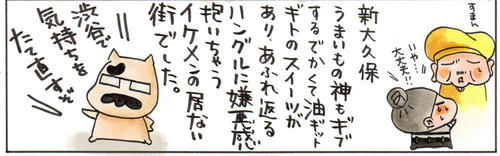 すまん
いや…
大丈夫…
新大久保
うまいもの神もギブ
するでかくて油ギット
ギトのスイーツが
あり、あふれ返る
ハングルに嫌悪感
抱いちゃう
イケメンの居ない
街でした。
渋谷で
気持ちを
たて直すぞ